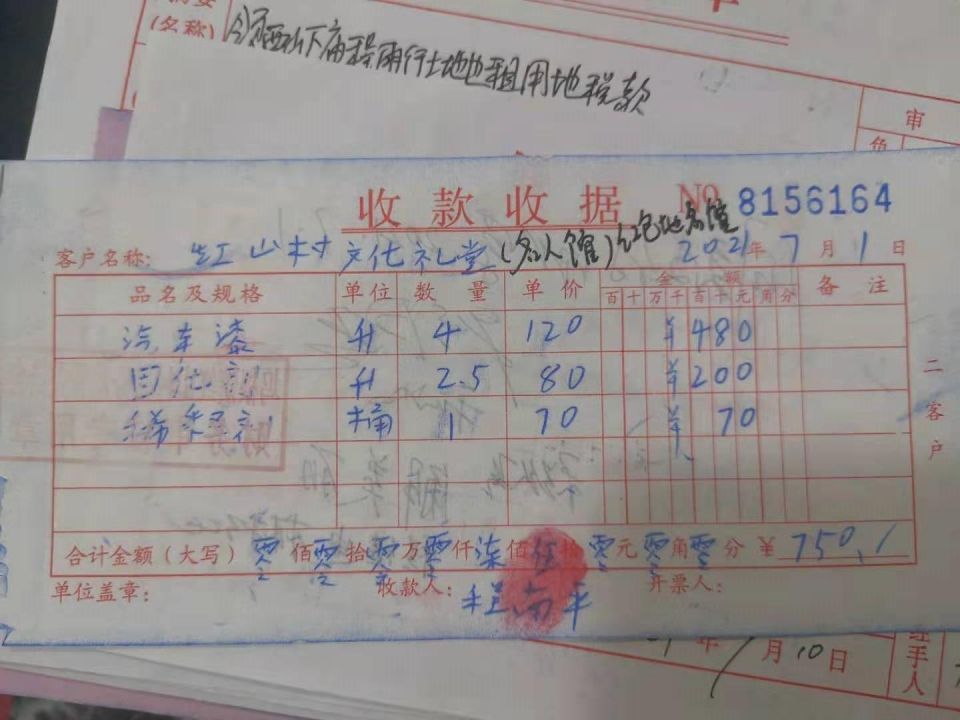 (名称)
审
收款收据 № 8156164
客户名称: 红山村文化礼堂(名人馆) 2021年7月1日
品名及规格 单位 数量 单价 金额 备注
百 十 万 千 百 十 元 角 分
汽车漆 升 4 120 ¥480
固化剂 升 2.5 80 ¥200
稀释剂 桶 1 70 ¥70
二客户
合计金额(大写) 零佰零拾零万零仟柒佰伍拾零元零角零分 ¥ 750.
单位盖章: 收款人: 程南平 开票人:
年 月10日
手人